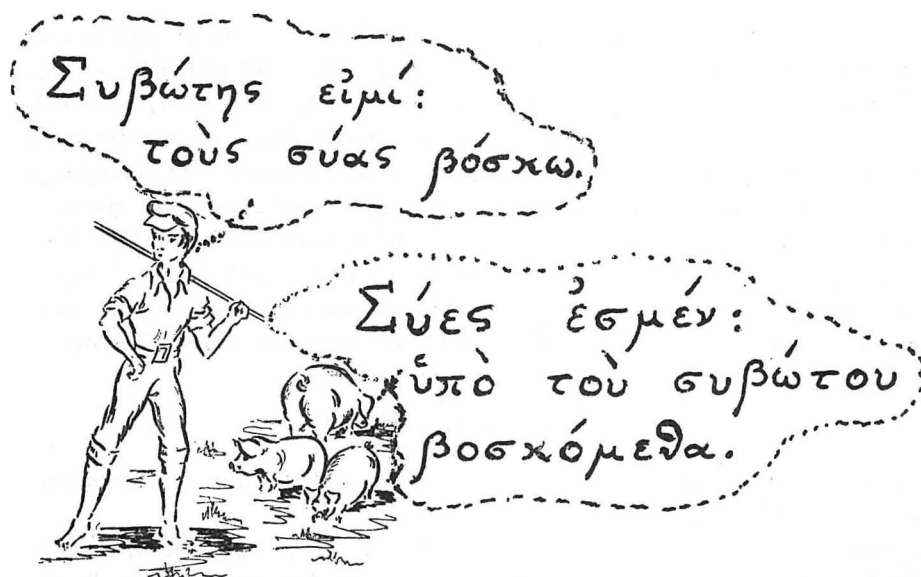 Συβώτης εἰμί:
τοὺς σύας βόσκω.
Σύες ἐσμέν:
ὑπὸ τοὺ συβώτου
βοσκόμεθα.